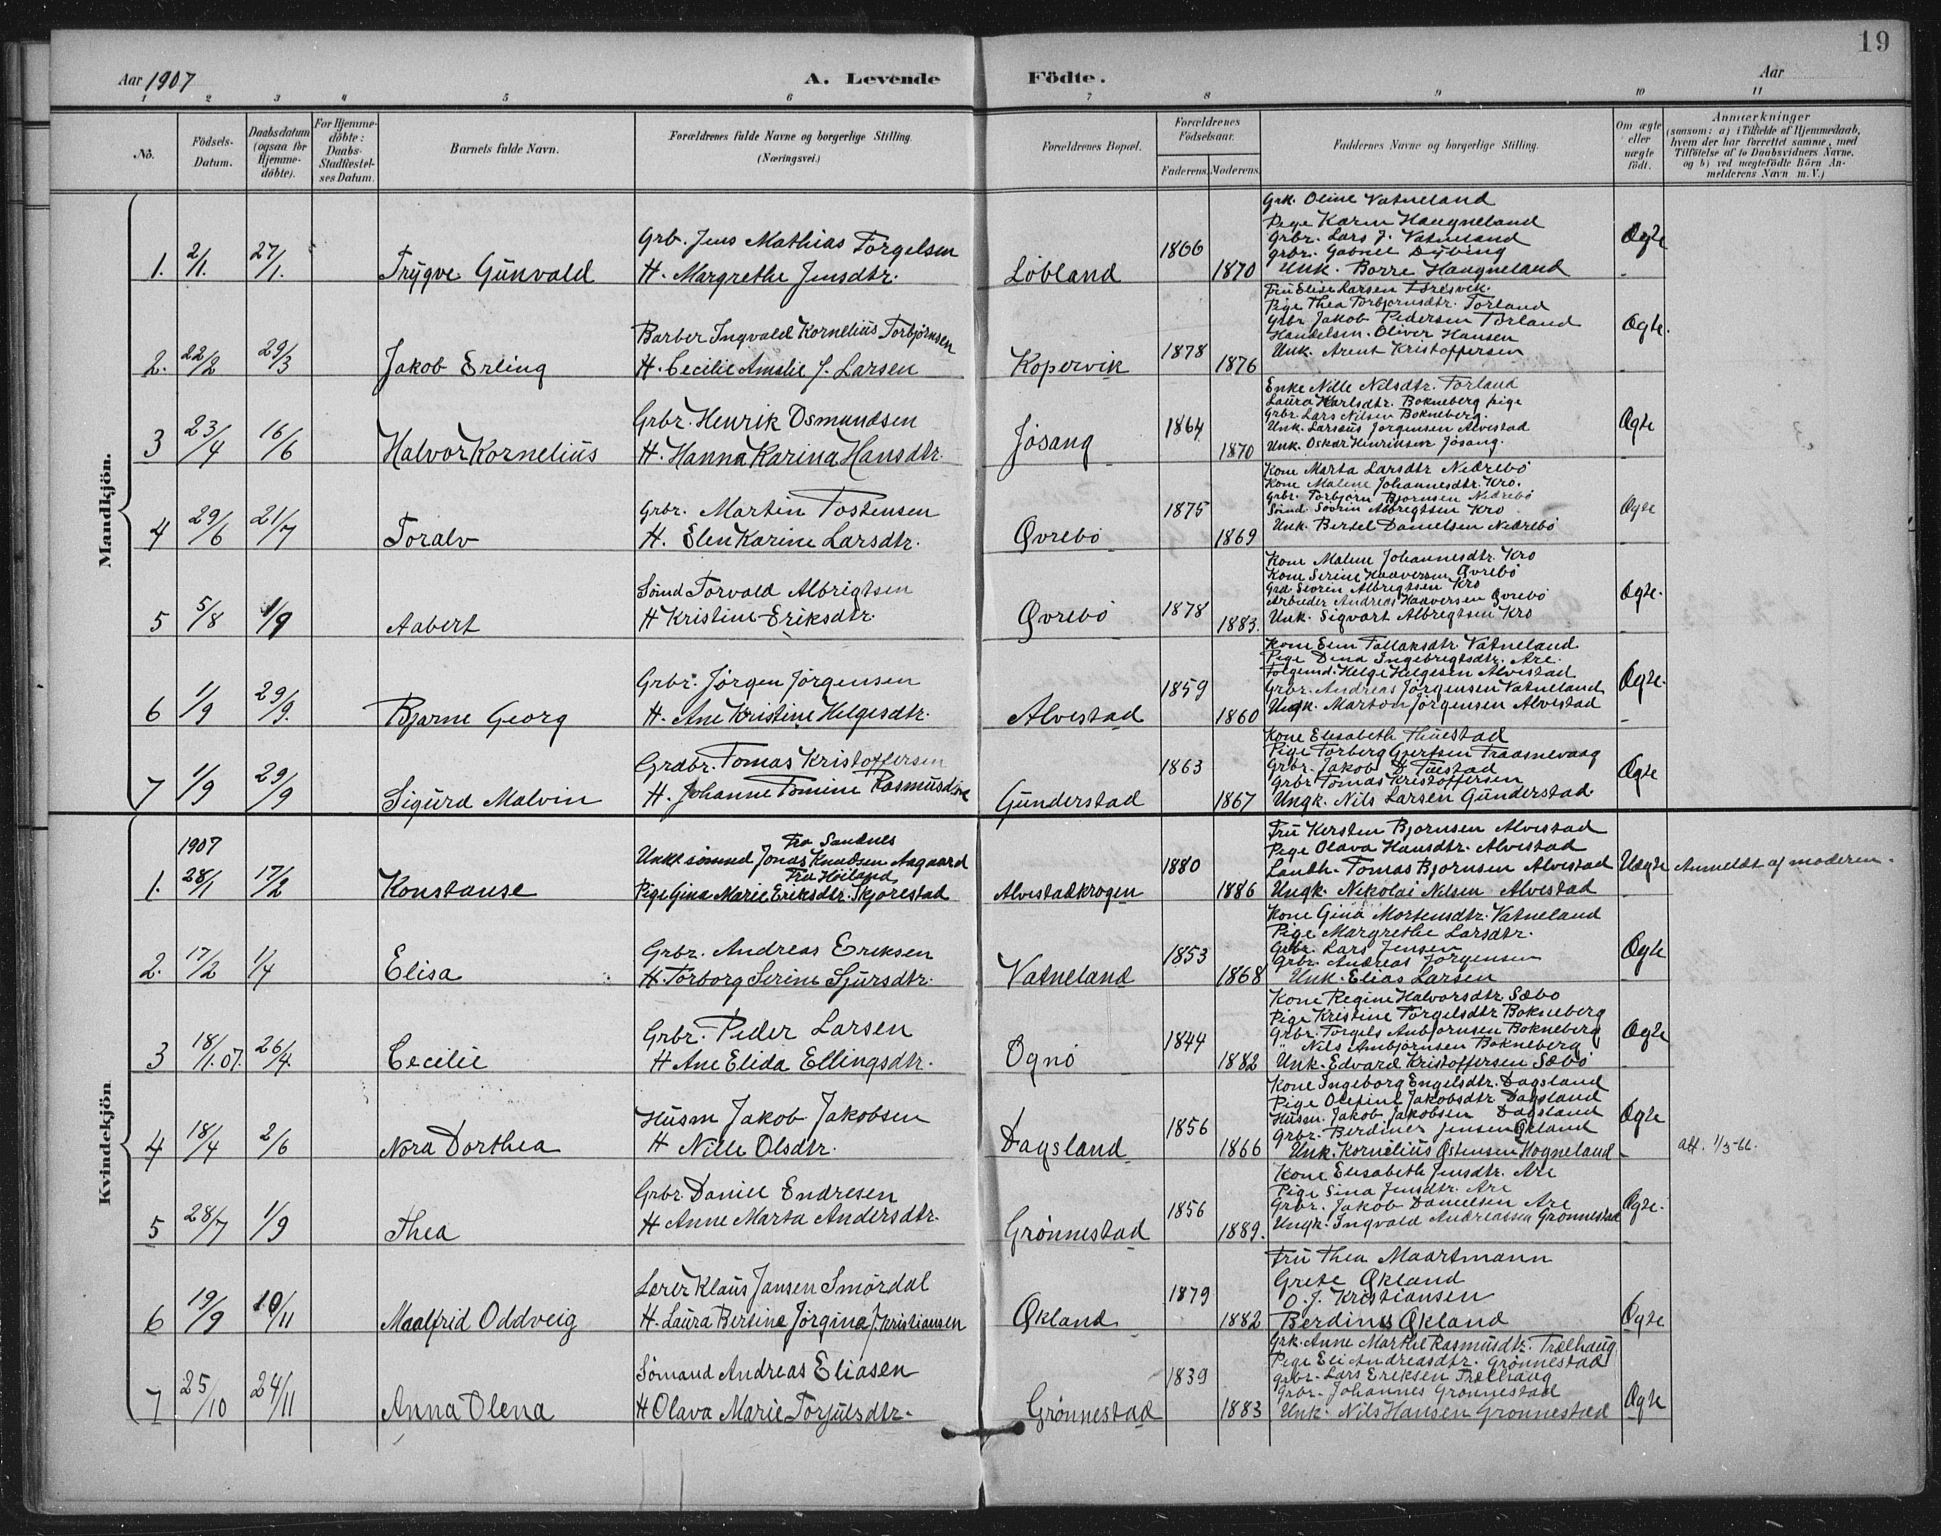 19
Aar 1907
A. Levende
Födte.
Aar
1 2 3 4 5 6 7 8 9 10 11
No.
Födsels-Datum.
Daabsdatum (ogsaa for Hjemme-döbte).
For Hjemme-döbte: Daabs-Stadfæstel-ses Datum.
Barnets fulde Navn.
Forældrenes fulde Navne og borgerlige Stilling.
(Næringsvei.)
Forældrenes Bopæl.
Forældrenes Födselsaar.
Faderens. Moderens.
Faddernes Navne og borgerlige Stilling.
Om ægte eller uægte födt.
Anmærkninger
(saasom: a) i Tilfælde af Hjemmedaab, hvem der har forrettet samme, med Tilföielse af to Daabsvidners Navne, og b) ved uægtefödte Börn Anmelderens Navn m. V.)
Mandkjön.
1. 2/1. 27/1. Trygve Gunvald
Grb. Jens Mathias Torgelsen
H. Margrethe Jensdtr.
Löbland 1866 1870
Grk. Oline Vatneland
Pige Karin Haugneland
Grbr. Lars J. Vatneland
Grbr. Gabriel Dybing
Unk. Borre Haugneland
Ægte
2. 22/2 29/3 Jakob Erling
Barber Ingvald Kornelius Torbjørnsen
H. Cecilie Amalie J. Larsen
Kopervik 1878 1876
Fru Elise Larsen Føresvik.
Pige Thea Torbjørnsdtr. Torland
Grbr Jakob Pedersen Torland
Handelsm. Oliver Hansen
Unk. Arent Kristoffersen
Ægte.
3 23/4 16/6 Halvor Kornelius
Grbr. Henrik Osmundsen
H. Hanna Karina Hansdtr.
Jösang 1864 1870
Enke Nille Nilsdtr. Torland
Laura Karlsdtr. Bokneberg pige
Grbr. Lars Nilsen Bokneberg.
Unk. Larsæus Jørgensen Alvestad
Unk. Oskar Henriksen Jösang.
Ægte
4 29/6 21/7 Toralv
Grbr. Martin Tostensen
H. Elen Karine Larsdtr.
Øvrebö 1875 1869
Kone Marta Larsdtr Nedrebö
Kone Malene Johannesdtr. Kro.
Grbr. Torbjörn Bjørnsen Nedrebö
Sömd. Sovrin Albregtsen Kro
Unk. Bertel Danielsen Nedrebö
Ægte
5 5/8 1/9 Aabert
Sömd Torvald Albrigtsen
H Kristine Eriksdtr.
Øvrebö 1878 1883.
Kone Malene Johannesdtr. Kro
Kone Serine Haaversen Øvrebö
Grd Sovrin Albregtsen Kro
Arbeider Andreas Haaversen Øvrebö
Unk. Sigvart Albregtsen Kro
Ægte.
6 1/9 29/9. Bjarne Georg
Grbr. Jörgen Jörgensen
H. Ane Kristine Helgesdtr.
Alvestad 1859 1860
Kone Elen Tollaksdtr. Vatneland
Pige Dina Ingebregtsdtr. Are.
Folgemd. Helge Helgesen Alvestad
Grbr. Andreas Jörgensen Vatneland
Ungk. Marton Jörgensen Alvestad
Ægte.
7 1/9 29/9 Sigurd Malvin
Grdbr. Tomas Kristoffersen
H. Johanne Tomine Rasmusdtr
Gunderstad 1863 1867
Kone Elisabeth Thuestad
Pige Torberg Gjertsen Traasnevaag
Grbr. Jakob D. Tuestad
Grbr Tomas Kristoffersen
Ungk. Nils Larsen Gunderstad.
Ægte
Kvindekjön
1907
1. 28/1 17/2 Konstanse
Fra Sandnes
Unkk sömnd Jonas Knudsen Aagaard
Fra Höiland
Pige Gina Marie Eriksdtr. Skjorestad
Alvestadkrogen 1880 1886
Fru Kersten Bjørnsen Alvestad
Pige Olava Hansdtr. Alvestad
Landh. Tomas Bjørnsen Alvestad
Ungk. Nikolai Nilsen Alvestad
Uægte Anmeldt af moderen.
2. 17/2 1/4 Elisa
Grbr. Andreas Eriksen
H. Torborg Serine Sjursdtr.
Vatneland 1853 1868
Kone Gina Mortensdtr. Vatneland
Pige Margrethe Larsdtr.
Grbr. Lars Jensen
Grbr. Andreas Jörgensen
Unk. Elias Larsen
Ægte
3 18/1.07. 26/4. Cecilie
Grbr. Peder Larsen
H Ane Elida Ellingsdtr.
Ognö 1844 1882
Kone Regine Halvorsdtr. Sæbö
Pige Kristine Torgelsdtr Bokneberg
Grbr. Torgels Anbjørnsen Bokneberg
" Nils Ambjørnsen Bokneberg
Unk. Edvard Kristoffersen Sæbö
Ægte
4 18/4 2/6 Nora Dorthea
Husm Jakob Jakobsen
H Nille Olsdtr.
Dagsland 1856 1866
Kone Ingeborg Engelsdtr. Dagsland
Pige Olefine Jakobsdtr Dagsland
Husm. Jakob Jakobsen Dagsland
Grbr. Berdines Jensen Økland
Unk. Kornelius Østensen Hogneland
Ægte att. 1/3-66.
5 28/7 1/9 Thea
Grbr. Daniel Endresen
H Anne Marta Andersdtr.
Grönnestad 1856 1889.
Kone Elisabeth Jensdtr. Are
Pige Sina Jensdtr. Are
Grbr. Jakob Danielsen Are
Ungk. Ingvald Andreassen Grönnestad
Ægte.
6 19/9 10/11 Maalfrid Oddveig
Lærer Klaus Jansen Smördal
H. Laura Bertine Jörgine J Kristiansen
Økland 1879 1882
Fru Thea Maartmann
Grete Økland
O. J. Kristiansen
Berdinus Økland
Ægte
7 25/10 24/11 Anna Olena
Sömand Andreas Eliasen
H Olava Marie Torjulsdtr.
Grönnestad 1839 1883
Grk. Anne Marthe Rasmusdtr. Trælhaug
Pige Eli Andreasdtr. Grönnestad
grbr. Lars Eriksen Trælhaug
Grbr. Johannes Grönnestad
Unk. Nils Hansen Grönnestad
Ægte